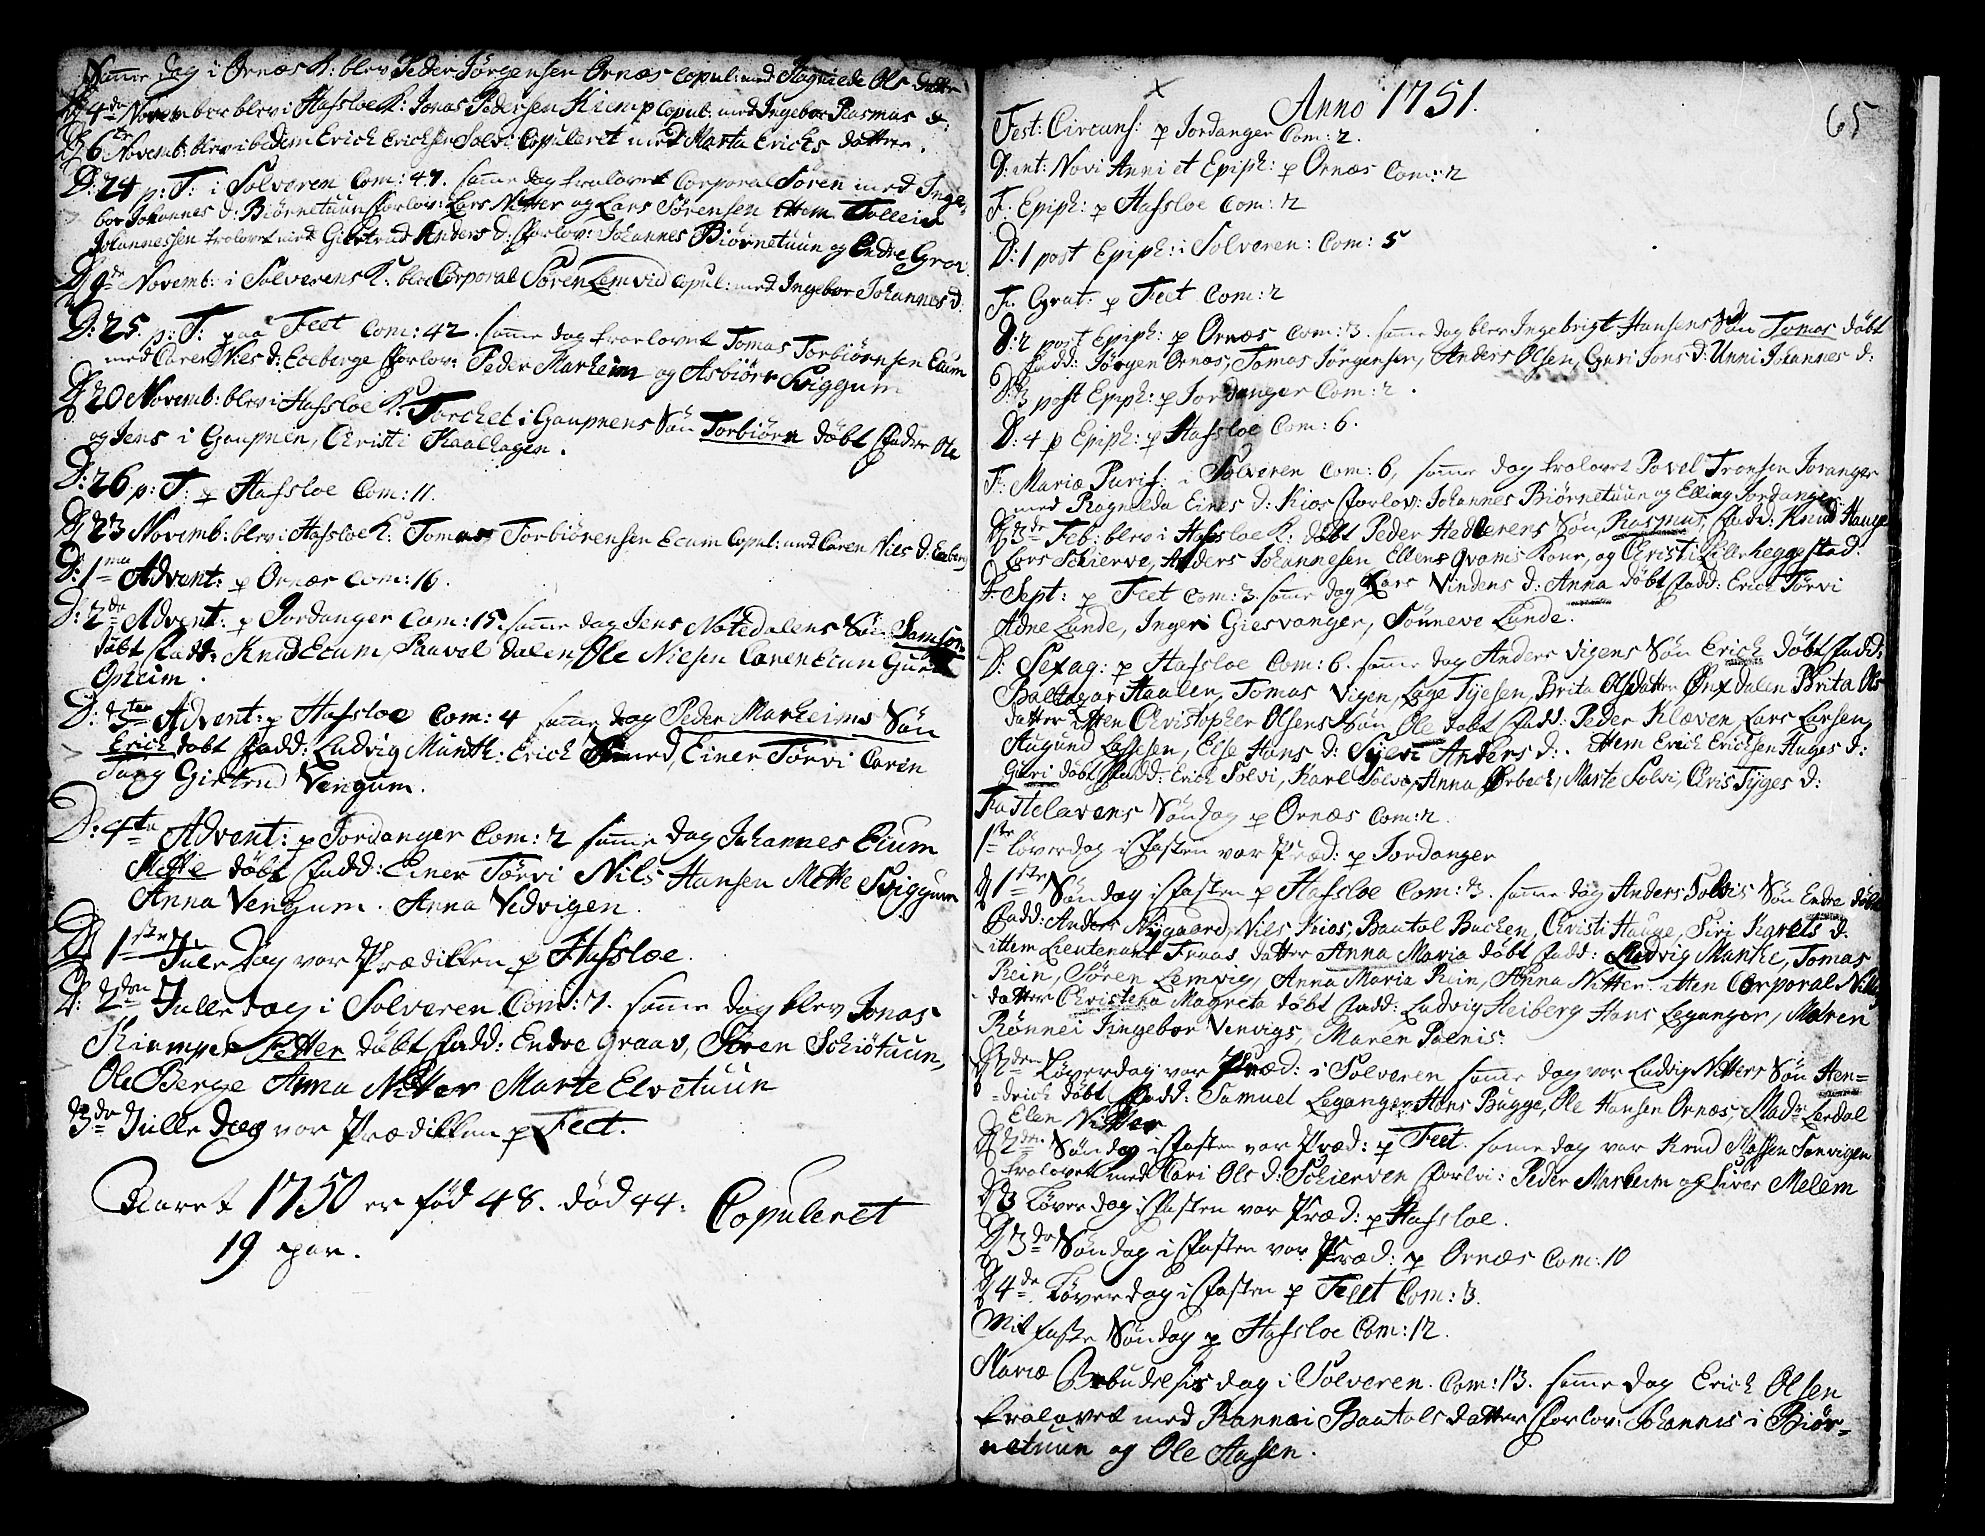 Samme dag i Ornæs K: blev Peder Jørgensen Ornæs Copul: med Ols
D: 4de November blev i Hafsloe K: Jonas Pedersen Kiemp Copul: med Ingebor Rasmus d:
D: 6te Novemb: blev ibidem Erich Erichsen Solvi Copuleret med Marta Erichs datter.
D: 24 p: T: i Solveren Com: 47. samme dag trolovet Corporal Søren med Inge-
bor Johannes d: Biørnetuun forlov: Lars Nitter og Lars Sørensen ittem Tolleiv
Johannessen trolovet med Giertrud Anders d: forlov: Johannes Biørnetuun og Endre Grov
D: 9de Novemb: i Solverens K: blev Corporal Søren Lemvid Copul: med Ingebor Johannes d.
D: 25. p: T: paa Feet Com: 42. samme dag troelovet Tomas Torbiørnsen Ecum
med Caren Niels d: Eceberge forlov: Peder Marheim og Asbiørn Sviggum
D: 20 Novemb: blev i Hafsloe K: Torchel i Goupnens Søn Torbiørn døbt fader Ole
og Jens i Goupnen, Christi Haalhagen.
D: 26 p: T: p Hafsloe Com: 11.
D: 23 Novemb: blev i Hafsloe K: Tomas Torbiørensen Ecum Copul: med Caren Niels d: Eceberg
D: 1ma Advent: p Ornæs Com: 16.
D: 2da Advent: p Jordanger Com: 15. samme dag Jens Notedalens Søn Samson
døbt fadd: Knud Ecum, Paavel dalen, Ole Nielsen Caren Ecum Guri
Opheim.
D: 3tia Advent: p Hafsloe Com: 4 samme dag Peder Marheims Søn
Erich døbt fadd: Ludvig Munth: Erich, Einer Tørvi Carin
Tang Giertrud Vengum.
D: 4ta Advent: p Jordanger Com: 2 samme dag Johannes Ecum
Mette døbt fadd: Einer Tørvi Nils Hansen Mette Sviggum
Anna Vengum. Anna Vedvigen.
D 1ste Jule Dag var Prædikken p Hafsloe.
D: 2den Julle dag i Solveren Com: 7. samme dag blev Jonas
Kiempes Petter døbt fadd: Endre Graav, Søren Schiøtuun,
Ole Berge Anna Nitter Marte Elvetuun
3de Julle dag var Prædikken p Feet.
Aaret 1750 er fød 48. død 44. Copuleret
19 par.
65
Anno 1751.
Fest: Circums: p Jordanger Com: 2.
D: int: Novi Anni et Epiph: p Ornæs Com: 2
F. Epiph: p Hafsloe Com: 2
D: 1 post Epiph: i Solveren: Com: 5
F. Cynt: p Feet Com: 2
D: 2 post Epiph: p Ornæs Com: 3. samme dag blev Ingebrigt Hansens Søn Tomas døbt
fadd: Jørgen Ornæs, Tomas Jørgensen, Anders Olsen, Guri Jons d: Unni Johannes d:
D: 3 post Epiph: p Jordanger Com: 2.
D: 4 p Epiph: p Hafsloe Com: 6.
F: Mariæ Purif: i Solveren Com: 6, samme dag trolovet Povel Tronsen Joranger
med Ragnelda Einers d: Kios forlov: Johannes Biørnetuun og Elling Jordanger
D 3de Feb: blev i Hafsloe K: døbt Peder Hedlerens Søn, Rasmus, fadd: Knud Hauge
Lars Schierve, Anders Johannesen Ellens Qvams Kone, og Christi Lille heggestad.
D: Sept: p Feet Com: 3. samme dag Lars Vindens d: Anna døbt fadd: Erich Tørvi
Adne Lunde, Ingeri Giesvanger, Sønneve Lunde.
D: Sexag: p Hafsloe Com: 6. samme dag Anders Vigens Søn Erich døbt fadd:
Baltazar Haalen, Tomas Vigen, Lage Tyesen, Brita Olsdatter Ønx dalen Brita Ols
datter itten Christopher Olsens Søn Ole døbt fadd: Peder Kleven, Lars Larsen,
Augund Lassesen, Else Hans d: Sylvi Anders d:. Ittem Erich Erichsen Huges d:
Guri døbt fadd: Erich Solvi, Karl Solvi, Anna Ørbech, Marte Solvi, Chris Tyges d:
Fastelavens Søndag p Ornæs Com: 2.
1ste Løverdag i fasten var Præd: p Jordanger
D 1ste Søndag i fasten p Hafsloe Com: 3. samme dag Anders Solvis Søn Endre døbt
fadd: Anders Nygaard, Niels Kios, Baatol Buchen, Christi Hauge, Siri Karels d:
ittem Lieutenant Fraas datter Anna Maria døbt fadd: Ludvig Munthe, Tomas
Rein, Søren Lemvig, Anna Maria Rein, Anna Nitter. itten Corporal Nills
datter Christena Magreta døbt fadd: Ludvig Heiberg Hans Leganger, Maren
Rønnei Jingebor Venvigs, Maren Paenis.
D 2den Løverdag var Præd: i Solveren samme dag var Ludvig Nitters Søn Hen-
-drich døbt fadd: Samuel Leganger, Hans Bugge, Ole Hansen Ornæs, Mad: Lerdal
Elen Nitter
D 2den Søndag i fasten var Præd: p Feet. samme dag var Knud Massen Sanvigen
trolovet med Cari Ols d: Schierven forlvi: Peder Marheim og Siver Melem
D 3 Løverdag i fasten var Præd: p Hafsloe.
D 3de Søndag i fasten var Præd: p Ornæs Com: 10
D 4de Løverdag i fasten p Feet Com: 3.
Mit faste Søndag p Hafsloe Com: 12.
Mariæ Bebudelsis dag i Solveren Com: 13. samme dag Erich Olsen
trolovet med Rannei Baatols datter forlov: Johannis i Biør-
netuun og Ole Hassen.